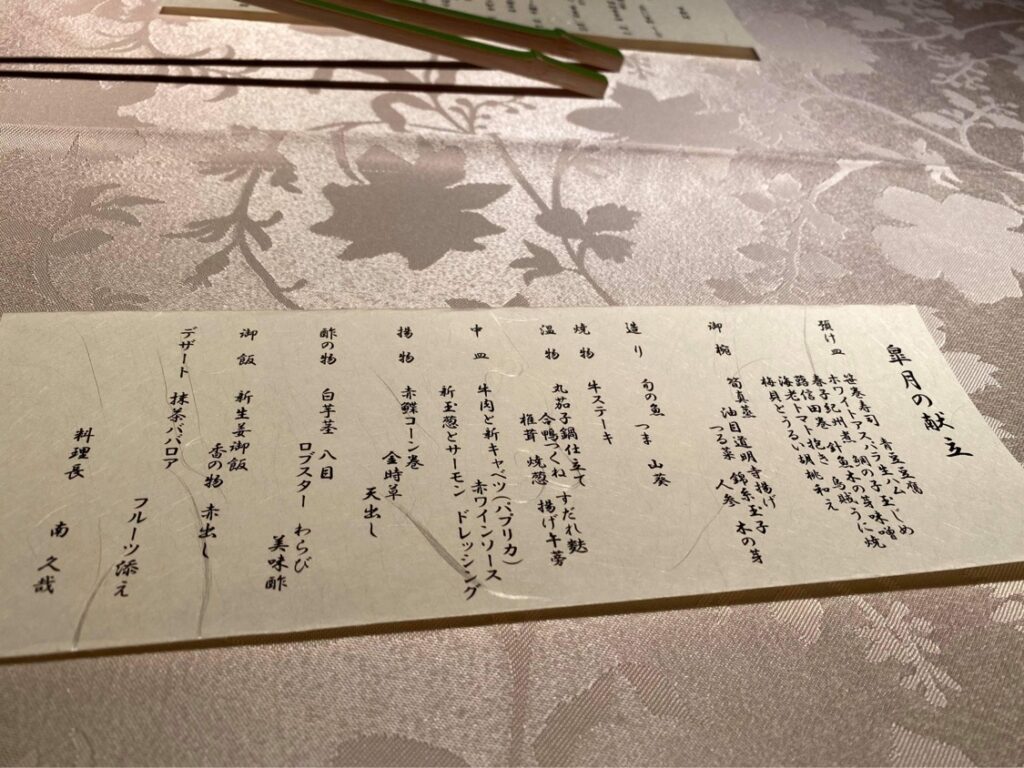 皐月の献立
預け皿 笹巻寿司 青豆豆腐
ホワイトアスパラ生ハム〆
春子紀州煮 鯛の子玉味噌
蕗信田巻 針魚木の芽
抱き 烏賊うに焼
海老トマト 胡桃和え
梅貝とうるい
御椀 筍真蒸 油目道明寺揚げ
つる菜 錦糸玉子
人参 木の芽
造り 旬の魚 つま 山葵
焼物 牛ステーキ
温物 丸茄子鍋仕立て すだれ麩
合鴨つくね 揚げ牛蒡
椎茸 焼葱
中皿 牛肉と新キャベツ(パプリカ)
赤ワインソース
新玉葱とサーモン ドレッシング
揚物 赤鰈コーン巻
金時草 天出し
酢の物 白芋茎 八目
ロブスター わらび
美味酢
御飯 新生姜御飯
香の物 赤出し
デザート 抹茶ババロア
フルーツ添え
料理長 南 久哉